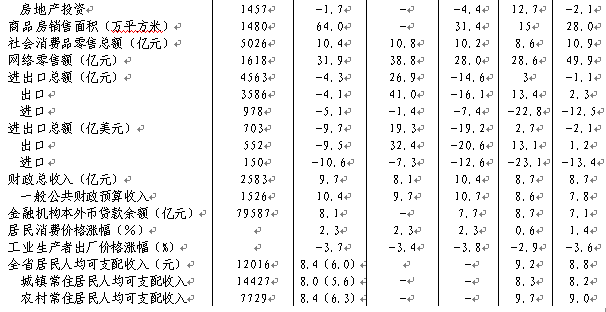 房地产投资 1457 -1.7 - -4.4 12.7 -2.1
商品房销售面积（万平方米） 1480 64.0 - 31.4 15 28.0
社会消费品零售总额（亿元） 5026 10.4 10.8 10.2 8.6 10.9
网络零售额（亿元） 1618 31.9 38.8 28.0 28.6 49.9
进出口总额（亿元） 4563 -4.3 26.9 -14.6 3 -1.1
出口 3586 -4.1 41.0 -16.1 13.4 2.3
进口 978 -5.1 -1.4 -7.4 -22.8 -12.5
进出口总额（亿美元） 703 -9.7 19.3 -19.2 2.7 -2.1
出口 552 -9.5 32.4 -20.6 13.1 1.2
进口 150 -10.6 -7.3 -12.6 -23.1 -13.4
财政总收入（亿元） 2583 9.7 8.1 10.4 8.7 8.7
一般公共财政预算收入 1526 10.4 9.7 10.7 8.6 7.8
金融机构本外币贷款余额（亿元） 79587 8.1 - 7.7 8.7 7.1
居民消费价格涨幅（%） 2.3 2.3 2.3 0.6 1.4
工业生产者出厂价格涨幅（%） -3.7 -3.4 -3.8 -2.9 -3.6
全省居民人均可支配收入（元） 12016 8.4（6.0） - - 9.2 8.8
城镇常住居民人均可支配收入 14427 8.0（5.6） - - 8.3 8.2
农村常住居民人均可支配收入 7729 8.4（6.3） - - 9.7 9.0